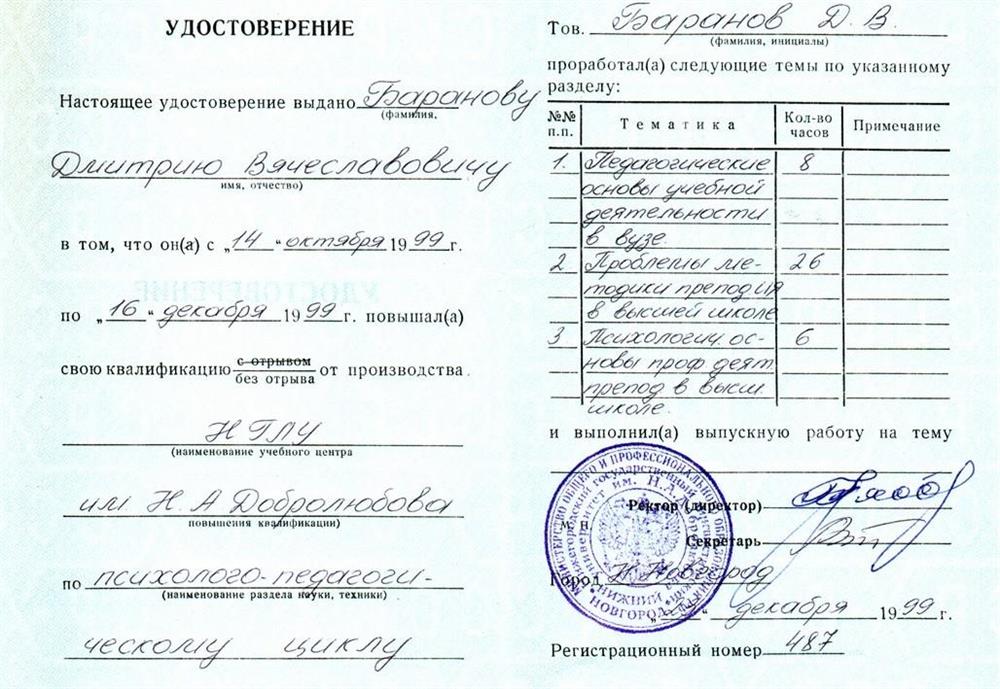 УДОСТОВЕРЕНИЕ
Настоящее удостоверение выдано Баранову
(фамилия,
Дмитрию Вячеславовичу
имя, отчество)
в том, что он(а) с „14“ октября 1999 г.
по „16“ декабря 1999 г. повышал(а)
свою квалификацию с отрывом
без отрыва от производства.
НГЛУ
(наименование учебного центра
им. Н.А Добролюбова
повышения квалификации)
по психолого-педагоги-
(наименование раздела науки, техники)
ческому циклу
Тов. Баранов Д. В.
(фамилия, инициалы)
проработал(а) следующие темы по указанному
разделу:
№№ п.п. Тематика Кол-во часов Примечание
1. Педагогические 8
основы учебной
деятельности
в вузе.
2 Проблемы ме- 26
тодики препод ия
в высшей школе
3 Психологич. ос- 6
новы проф деят.
препод в высш.
школе.
и выполнил(а) выпускную работу на тему
Ректор (директор)
М. П.
Секретарь
Город Н Новгород
„ “ декабря 1999 г.
Регистрационный номер 487
МИНИСТЕРСТВО ОБЩЕГО И ПРОФЕССИОНАЛЬНОГО
НИЖНИЙ НОВГОРОД